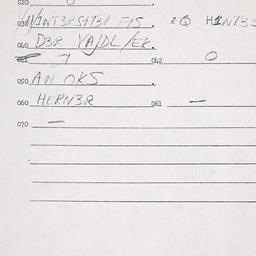 020
030 H1NT3RSIT3R FIS. ZQ H1NT3S
040 D3R VAJDL/EK.
041 042 O
050 AN OKS
060 HERN3R 061 —
070 —